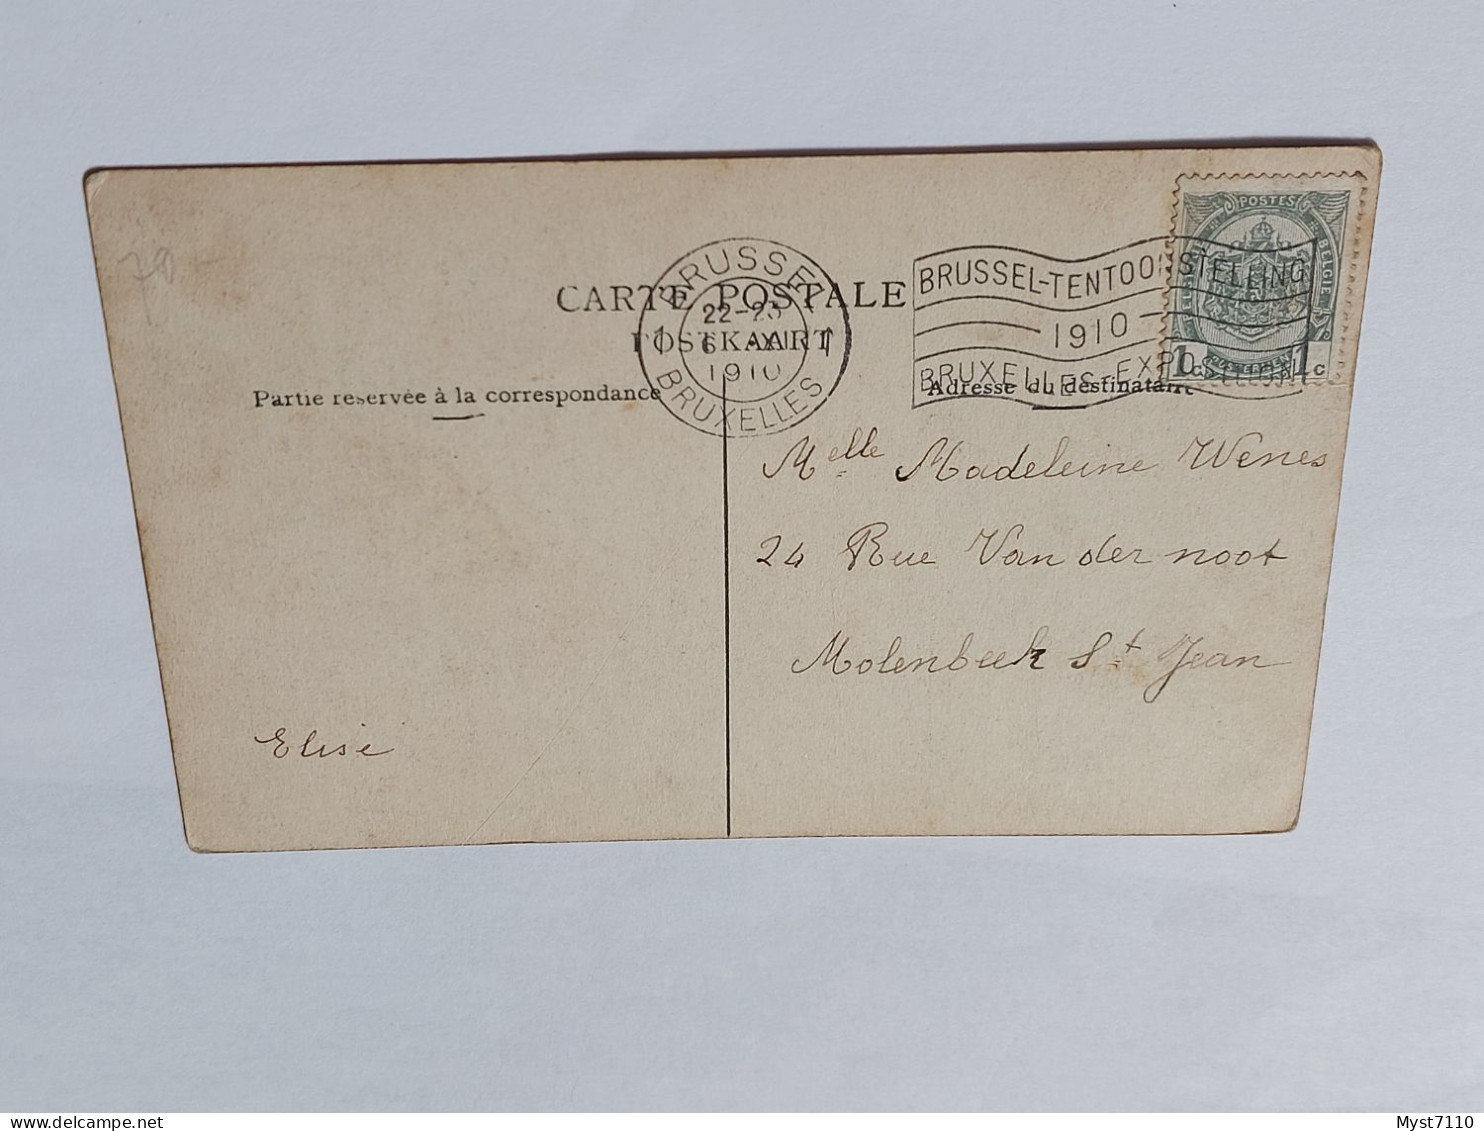 70
CARTE POSTALE
POSTKAART
Partie réservée à la correspondance
Adresse du destinataire
BRUSSEL
22-23
6 XII
1910
BRUXELLES
1
1
BRUSSEL-TENTOONSTELLING
1910
BRUXELLES-EXPOSITION
POSTES
BELGIË
1c 1c
Melle Madeleine Wenes
24 Rue Van der noot
Molenbeek St Jean
Elise
Myst7110